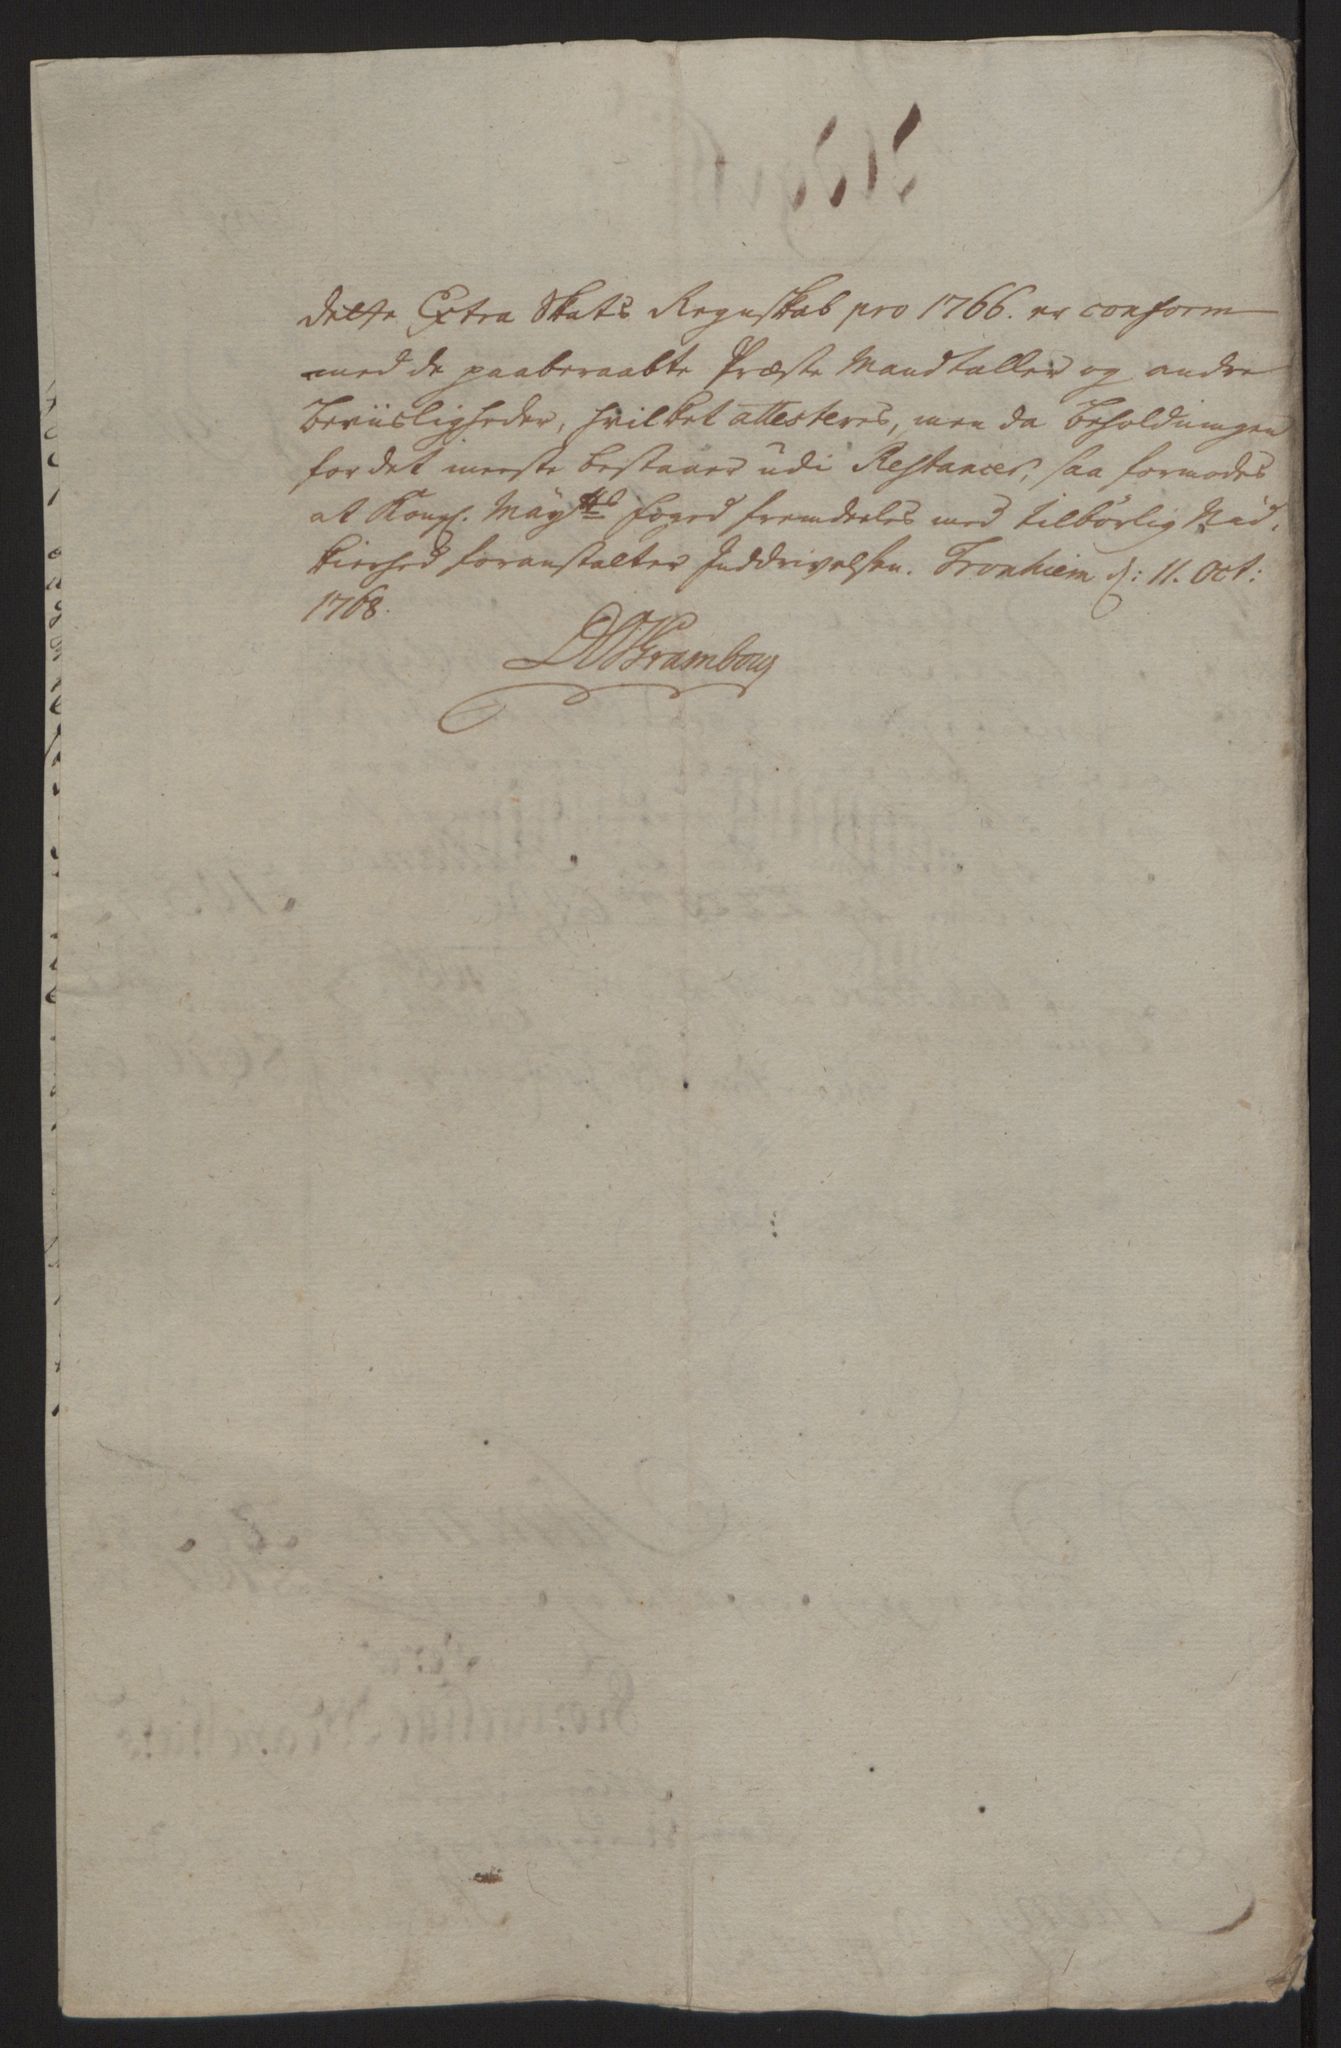 Dette Extra Skats Regnskab pro 1766. er conform
med de paaberaabte Præste Mandtaller og andre
Beviisligheder, hvilket attesteres, men da Beholdningen
for det meeste bestaaer udi Restancer, saa formodes
at Kongl. May.tts foged fremdeeles med tilbörlig Nid-
kierhed foranstalter Inddrivelsen. Tronhiem d: 11. Oct:
1768.